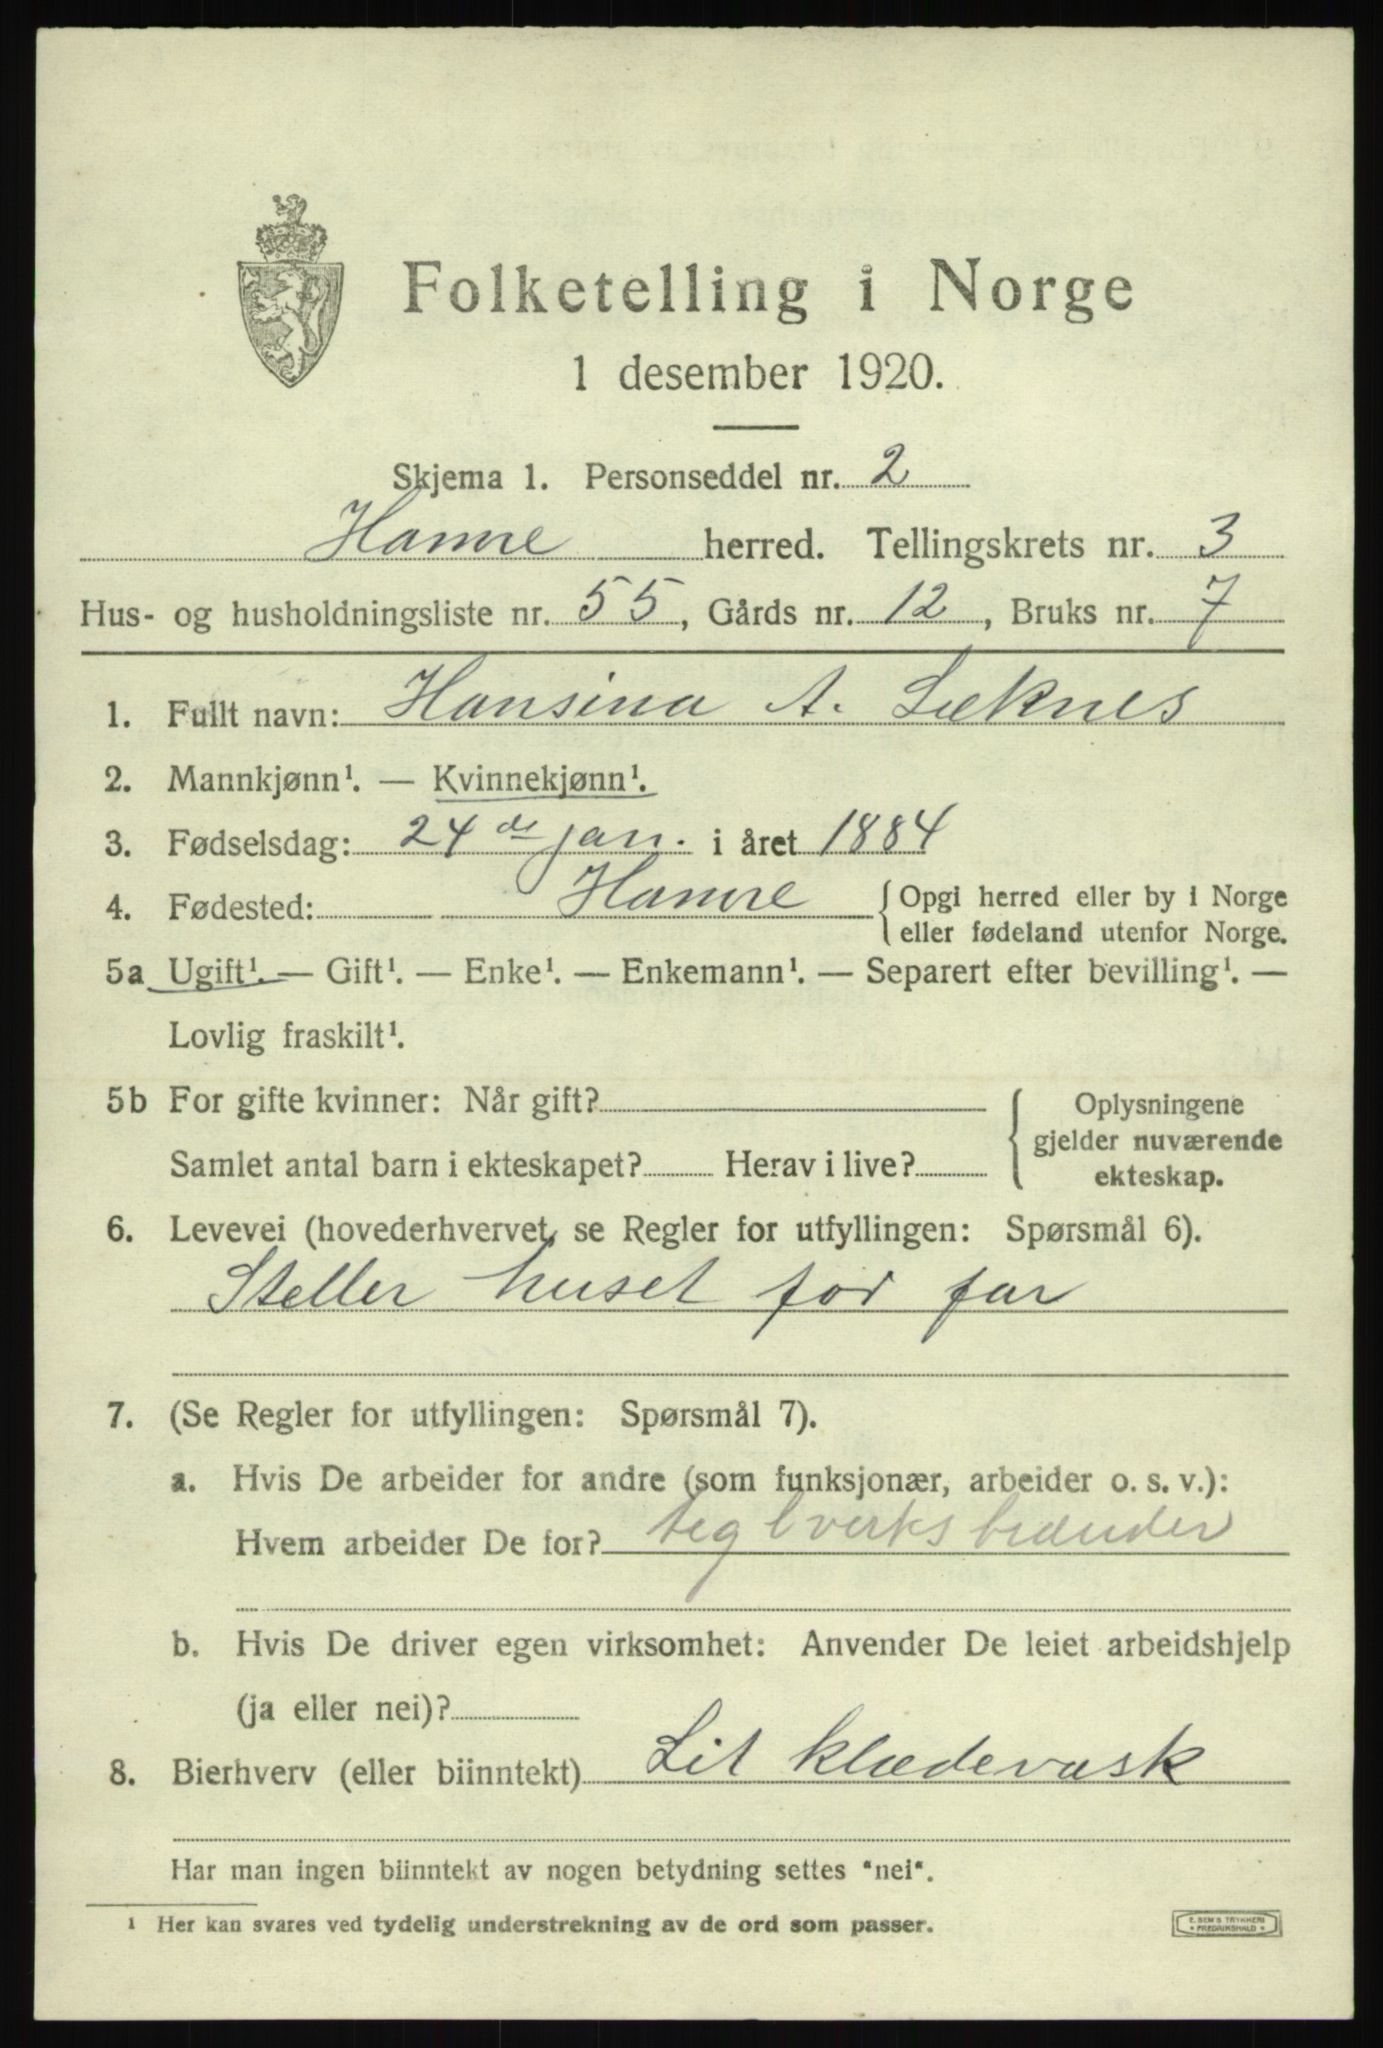 Folketelling i Norge
1 desember 1920.
Skjema 1. Personseddel nr. 2
Hamre herred. Tellingskrets nr. 3
Hus- og husholdningsliste nr. 55, Gårds nr. 12, Bruks nr. 7
1. Fullt navn: Hansina A. Leknes
2. Mannkjønn¹. — Kvinnekjønn¹.
3. Fødselsdag: 24de jan. i året 1884
4. Fødested: Hamre {Opgi herred eller by i Norge
eller fødeland utenfor Norge.
5a Ugift¹. — Gift¹. — Enke¹. — Enkemann¹. — Separert efter bevilling¹. —
Lovlig fraskilt¹.
5b For gifte kvinner: Når gift? { Oplysningene
gjelder nuværende
Samlet antal barn i ekteskapet? Herav i live? ekteskap.
6. Levevei (hovederhvervet, se Regler for utfyllingen: Spørsmål 6).
Steller huset for far
7. (Se Regler for utfyllingen: Spørsmål 7).
a. Hvis De arbeider for andre (som funksjonær, arbeider o. s. v.):
Hvem arbeider De for? teglverksbrænder
b. Hvis De driver egen virksomhet: Anvender De leiet arbeidshjelp
(ja eller nei)?
8. Bierhverv (eller biinntekt) Lit klædevask
Har man ingen biinntekt av nogen betydning settes "nei".
¹ Her kan svares ved tydelig understrekning av de ord som passer.
E. SEM'S TRYKKERI
* FREDRIKSHALD *